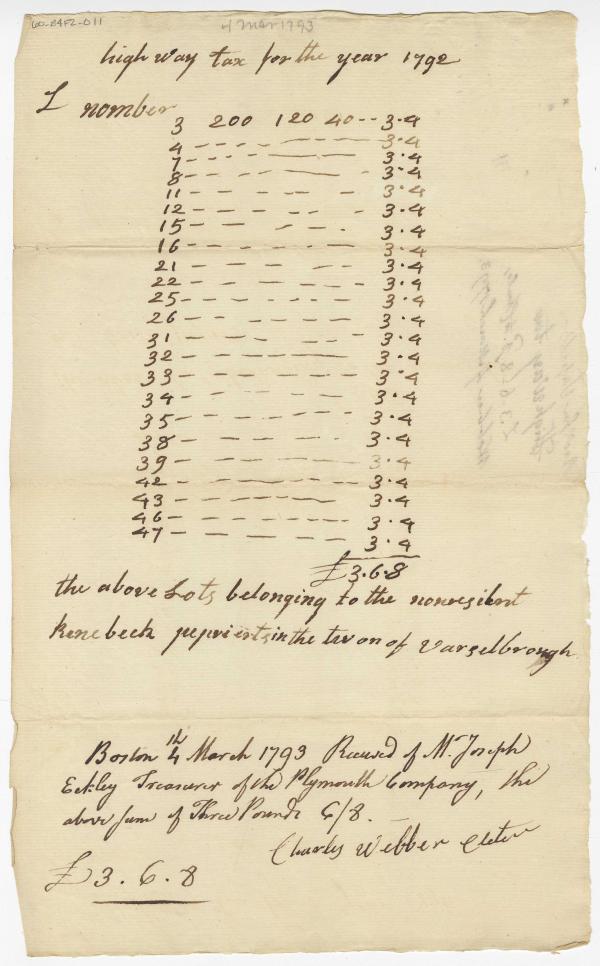 60-24F2-011
4 Mar 1793
high way tax for the year 1792
L number
3 200 120 40 -- 3.4
4 - - - - 3.4
7 - - - - 3.4
8 - - - - 3.4
11 - - - - 3.4
12 - - - - 3.4
15 - - - - 3.4
16 - - - - 3.4
21 - - - - 3.4
22 - - - - 3.4
25 - - - - 3.4
26 - - - - 3.4
31 - - - - 3.4
32 - - - - 3.4
33 - - - - 3.4
34 - - - - 3.4
35 - - - - 3.4
38 - - - - 3.4
39 - - - - 3.4
42 - - - - 3.4
43 - - - - 3.4
46 - - - - 3.4
47 - - - - 3.4
£3.6.8
the above Lots belonging to the nonresident
Kenebeck in the town of Varselbrough
Boston 4th March 1793 Received of Mr. Joseph
Eckley Treasurer of the Plymouth Company, the
above sum of Three Pounds 6/8. —
Charles Webber
£3.6.8